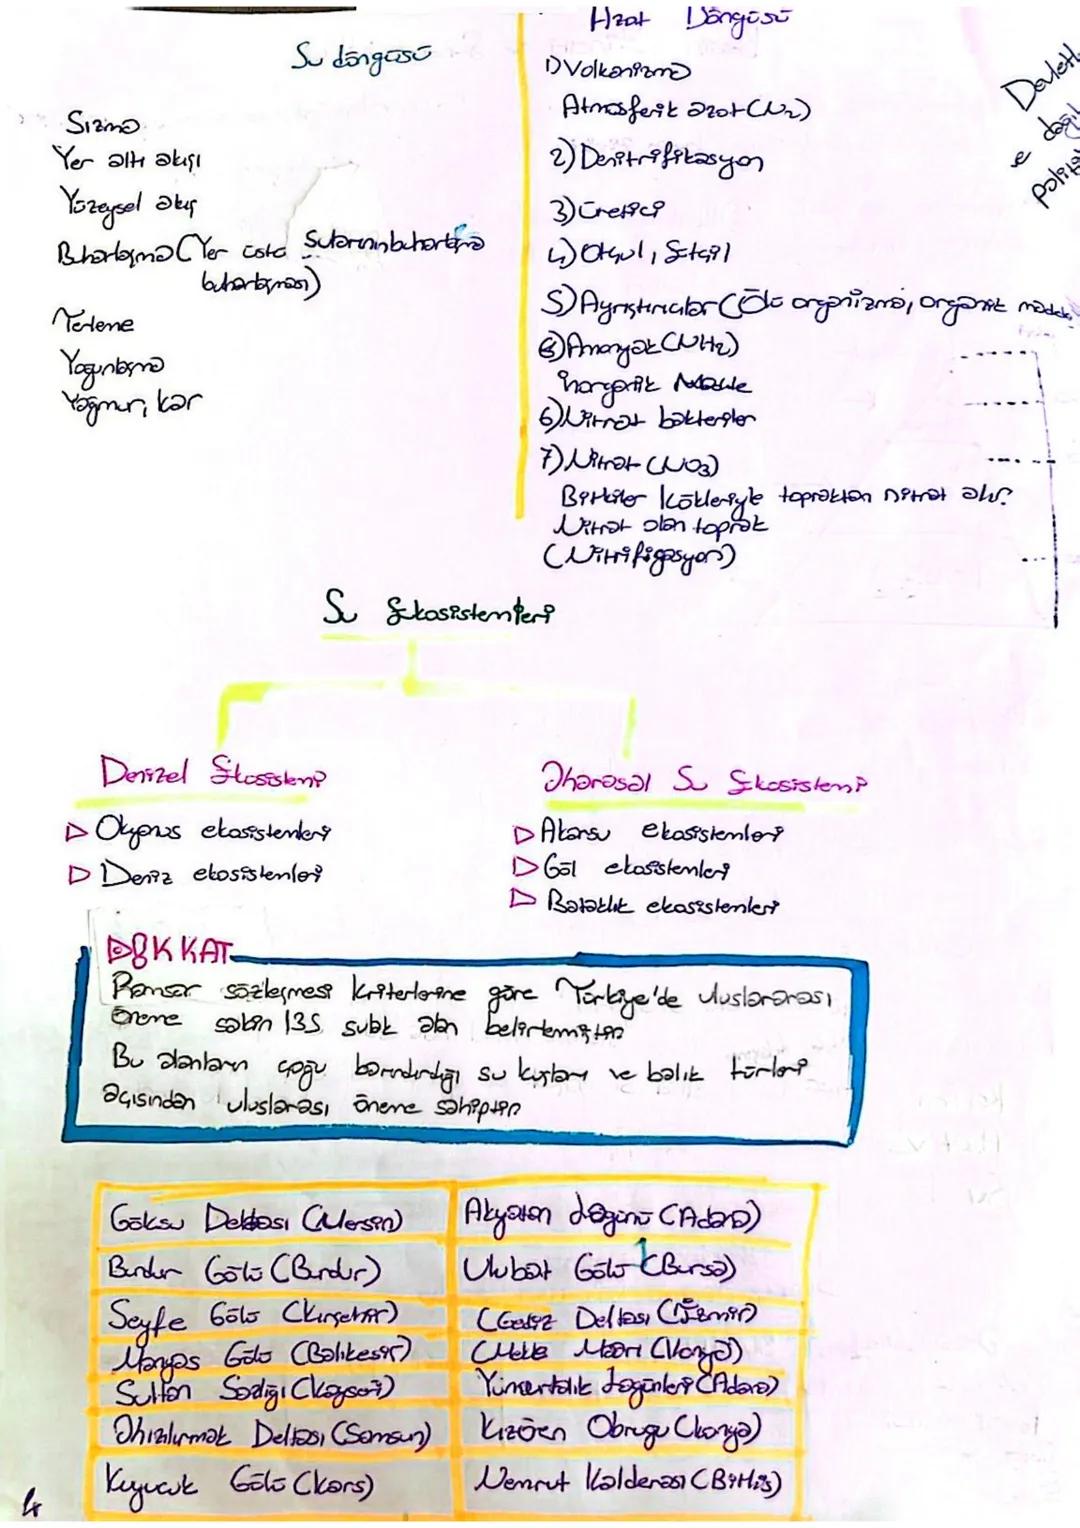 Su döngüsü
Sızma
Yer altı akışı
Yüzeysel akış
Buharlaşma (Yer üstü Sularının buharlaşma
buharlaşması)
Terleme
Yoğunlaşma
Yağmur, kar
Azot Döngüsü
1) Volkanizma
Atmosferik azot (N2)
2) Denitrifikasyon
3) Üretici
4) Otçul, Etçil
5) Ayrıştırıcılar (Ölü organizma, organik madde
6) Amonyak (NH2)
İnorganik Madde
6) Nitrat bakteriler
7) Nitrat (NO3)
Bitkiler kökleriyle topraktan nitrat alır.
Nitrat olan toprak
(Nitrifigasyon)
Devletl
e dağıl
politi
Su Ekosistemleri
Denizel Ekosistemi
▷ Okyanus ekosistemleri
▷ Deniz ekosistemleri
Karasal Su Ekosistemi
▷ Akarsu ekosistemleri
▷ Göl ekosistemleri
▷ Bataklık ekosistemleri
DİKKAT
Ramsar sözleşmesi kriterlerine göre Türkiye'de uluslararası
öneme sahin 135 sulak alan belirlenmiştir
Bu alanların çoğu barındırdığı su kuşları ve balık türleri
açısından uluslarası öneme sahiptir
Göksu Deltası (Mersin) Akyatan Lagünü (Adana)
Burdur Gölü (Burdur) Ulubat Gölü (Bursa)
Seyfe Gölü (Kırşehir) Gediz Deltası (İzmir)
Manyas Gölü (Balıkesir) Meke Maarı (Konya)
Sultan Sazlığı (Kayseri) Yumurtalık Lagünleri (Adana)
Kızılırmak Deltası (Samsun) Kızören Obruğu (Konya)
Kuyucuk Gölü (Kars) Nemrut Kalderası (Bitlis)
4